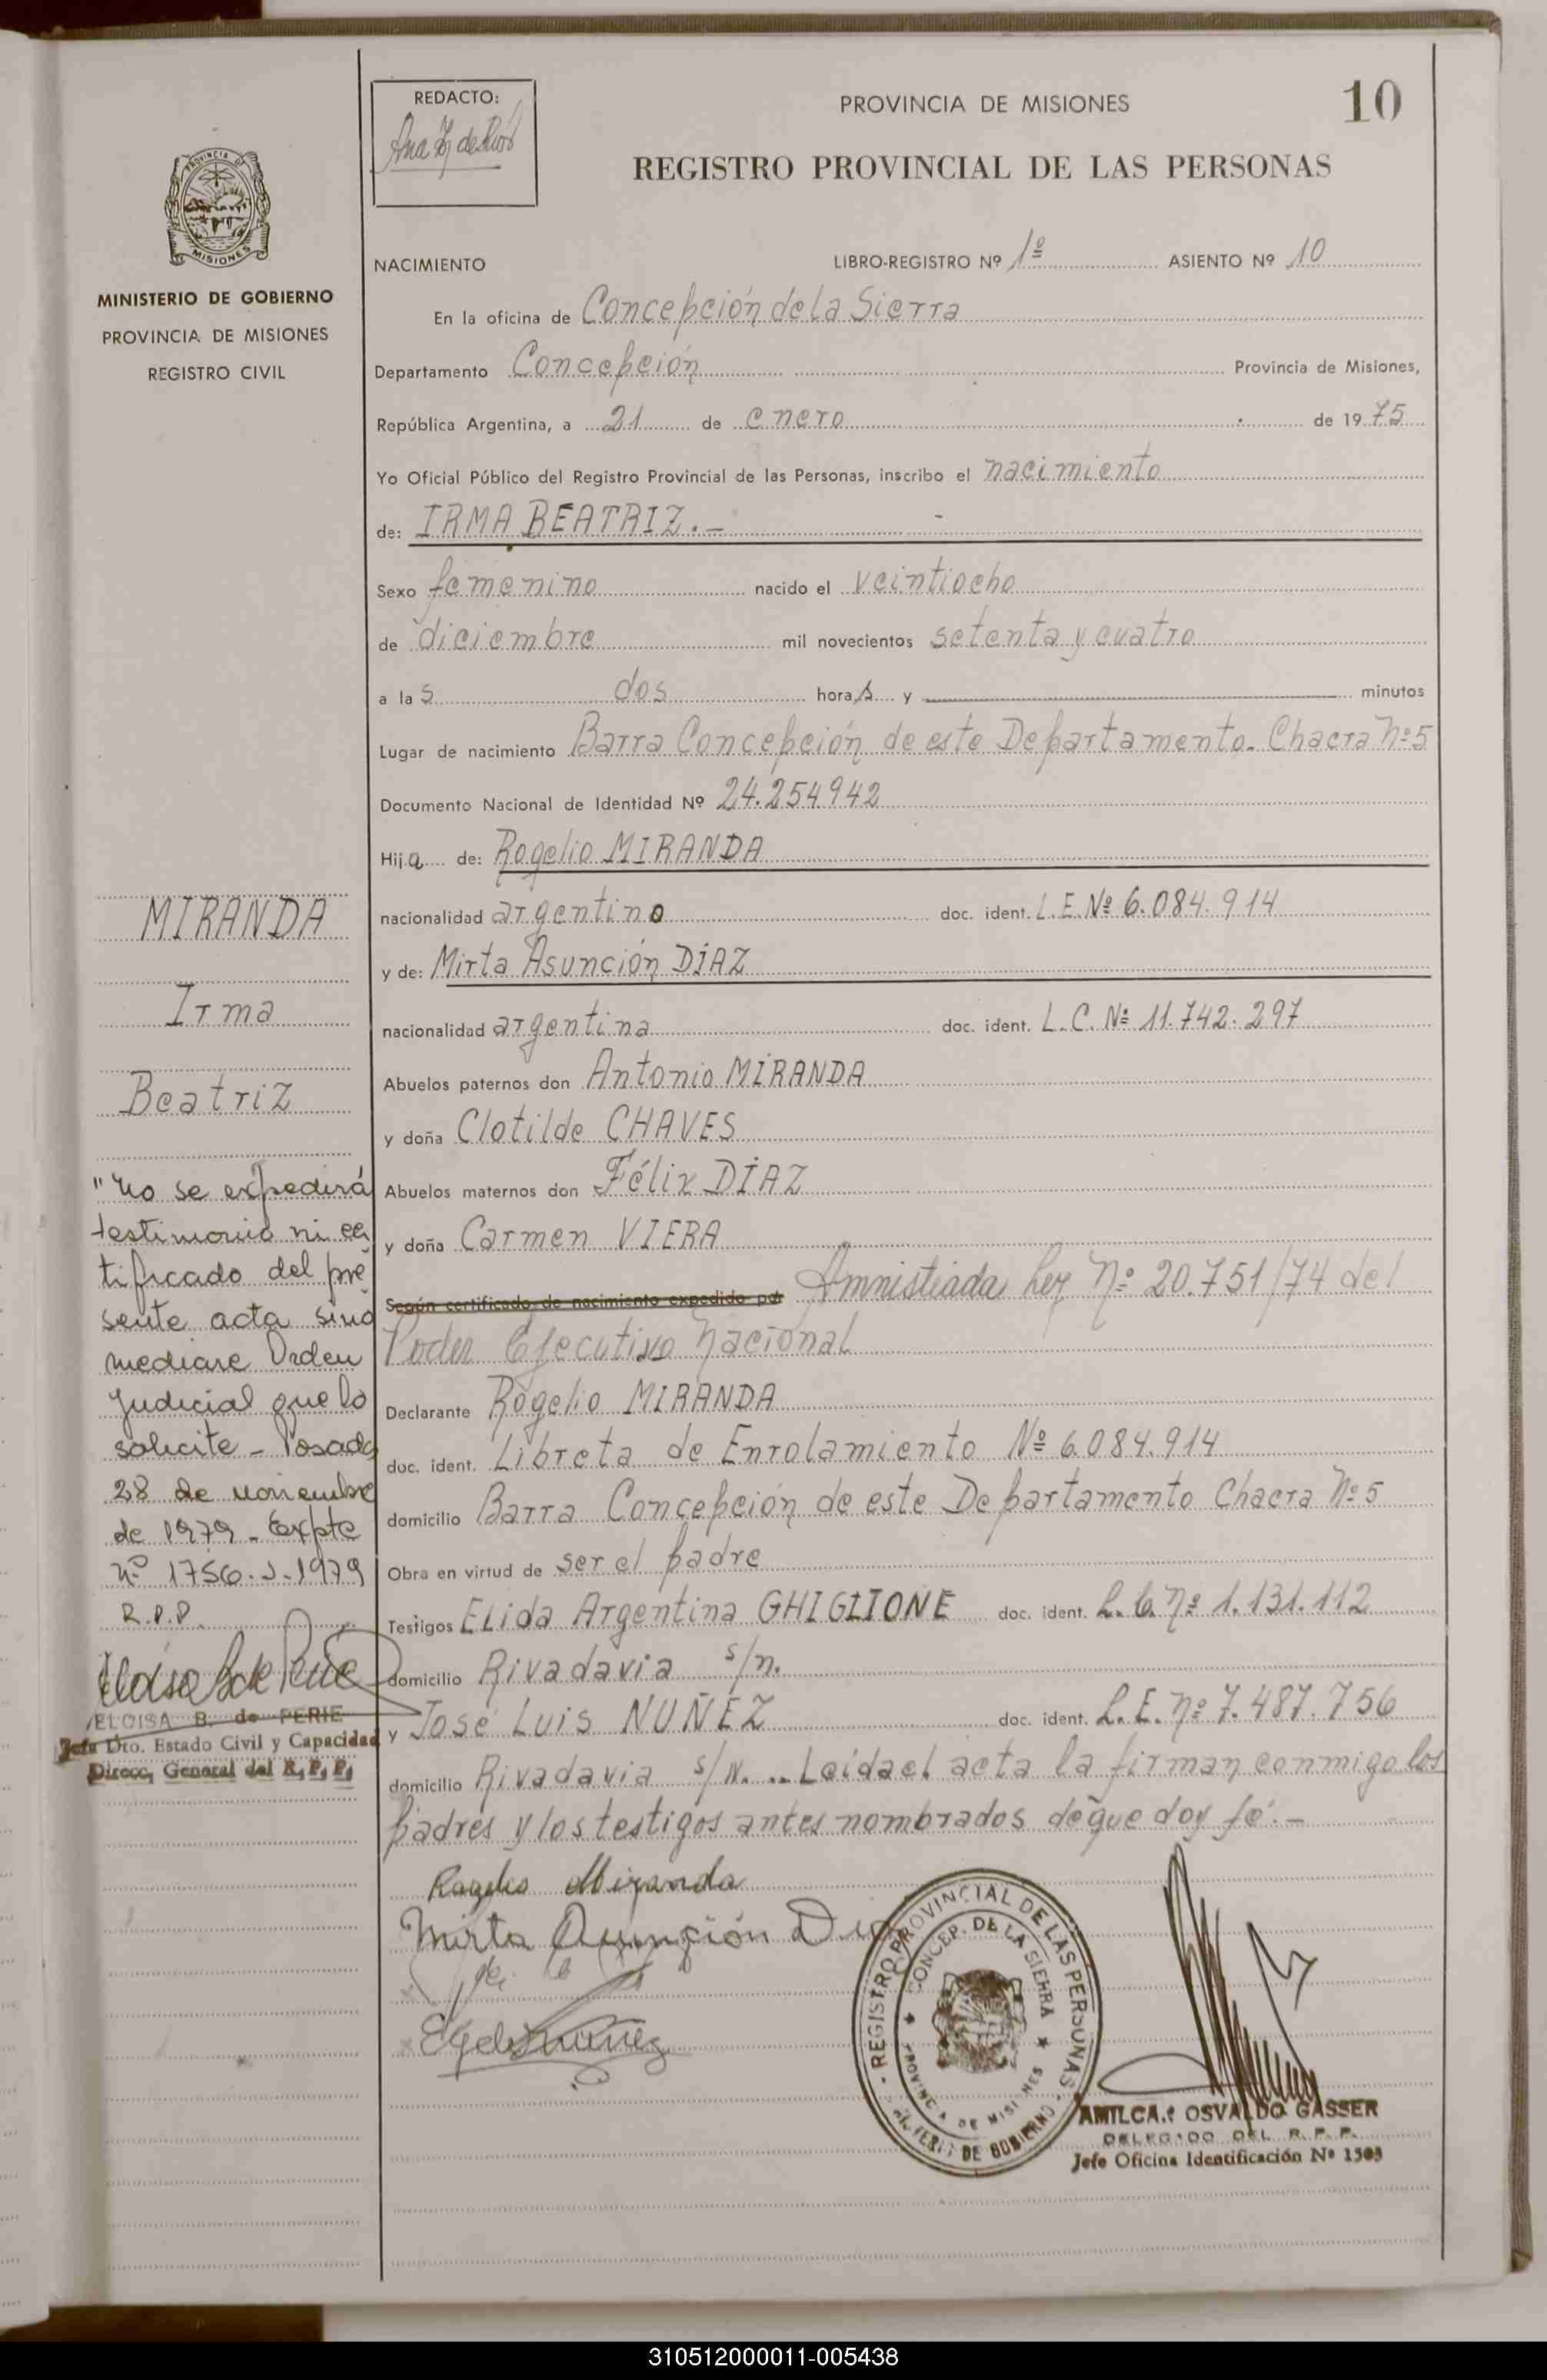 REDACTO:
PROVINCIA DE MISIONES
10
REGISTRO PROVINCIAL DE LAS PERSONAS
PROVINCIA DE
MISIONES
MINISTERIO DE GOBIERNO
PROVINCIA DE MISIONES
REGISTRO CIVIL
NACIMIENTO LIBRO-REGISTRO Nº 1º ASIENTO Nº 10
En la oficina de Concepción de la Sierra
Departamento Concepción Provincia de Misiones,
República Argentina, a 21 de enero de 1975
Yo Oficial Público del Registro Provincial de las Personas, inscribo el nacimiento
de: IRMA BEATRIZ.-
Sexo femenino nacido el veintiocho
de diciembre mil novecientos setenta y cuatro
a las dos horas y minutos
Lugar de nacimiento Barra Concepción de este Departamento. Chacra Nº 5
Documento Nacional de Identidad Nº 24.254942
Hija de: Rogelio MIRANDA
nacionalidad argentino doc. ident. L.E. Nº 6.084.914
y de: Mirta Asunción DÍAZ
nacionalidad argentina doc. ident. L.C. Nº 11.742.297
Abuelos paternos don Antonio MIRANDA
y doña Clotilde CHAVES
Abuelos maternos don Félix DÍAZ
y doña Carmen VIERA
Según certificado de nacimiento expedido por Amnistiada Ley Nº 20.751/74 del
Poder Ejecutivo Nacional
Declarante Rogelio MIRANDA
doc. ident. Libreta de Enrolamiento Nº 6.084.914
domicilio Barra Concepción de este Departamento Chacra Nº 5
Obra en virtud de ser el padre
Testigos Elida Argentina GHIGLIONE doc. ident. L.C. Nº 1.131.112
domicilio Rivadavia s/n.
y José Luis NUÑEZ doc. ident. L.E. Nº 7.487.756
domicilio Rivadavia s/N. .. Leída el acta la firman conmigo los
padres y los testigos antes nombrados de que doy fé.-
MIRANDA
Irma
Beatriz
"No se expedirá
testimonio ni cer
tificado del pre
sente acta sino
mediare Orden
Judicial que lo
solicite - Posadas
28 de noviembre
de 1979 - Expte
Nº 1756-J-1979
R.P.P.
ELOISA B. de PERIE
Jefa Dto. Estado Civil y Capacidad
Direcc. General del R.P.P.
Rogelio Miranda
Mirta Asunción Diaz
REGISTRO PROVINCIAL DE LAS PERSONAS
CONCEP. DE LA SIERRA
PROVINCIA DE MISIONES
MINISTERIO DE GOBIERNO
AMILCAR OSVALDO GASSER
DELEGADO DEL R.P.P.
Jefe Oficina Identificación Nº 1503
310512000011-005438